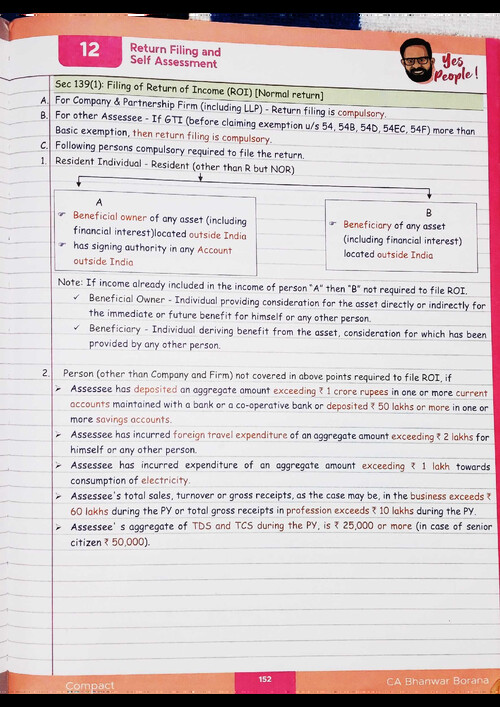 12
Return Filing and
Self Assessment
Yes
People!
Sec 139(1): Filing of Return of Income (ROI) [Normal return]
A. For Company & Partnership Firm (including LLP) - Return filing is compulsory.
B. For other Assessee - If GTI (before claiming exemption u/s 54, 54B, 54D, 54EC, 54F) more than
Basic exemption, then return filing is compulsory.
C. Following persons compulsory required to file the return.
1. Resident Individual - Resident (other than R but NOR)
A
☞ Beneficial owner of any asset (including
financial interest)located outside India
☞ has signing authority in any Account
outside India
B
☞ Beneficiary of any asset
(including financial interest)
located outside India
Note: If income already included in the income of person "A" then "B" not required to file ROI.
✓ Beneficial Owner - Individual providing consideration for the asset directly or indirectly for
the immediate or future benefit for himself or any other person.
✓ Beneficiary - Individual deriving benefit from the asset, consideration for which has been
provided by any other person.
2. Person (other than Company and Firm) not covered in above points required to file ROI, if
➢ Assessee has deposited an aggregate amount exceeding ₹ 1 crore rupees in one or more current
accounts maintained with a bank or a co-operative bank or deposited ₹ 50 lakhs or more in one or
more savings accounts.
➢ Assessee has incurred foreign travel expenditure of an aggregate amount exceeding ₹ 2 lakhs for
himself or any other person.
➢ Assessee has incurred expenditure of an aggregate amount exceeding ₹ 1 lakh towards
consumption of electricity.
➢ Assessee's total sales, turnover or gross receipts, as the case may be, in the business exceeds ₹
60 lakhs during the PY or total gross receipts in profession exceeds ₹ 10 lakhs during the PY.
➢ Assessee' s aggregate of TDS and TCS during the PY, is ₹ 25,000 or more (in case of senior
citizen ₹ 50,000).
Compact
152
CA Bhanwar Borana